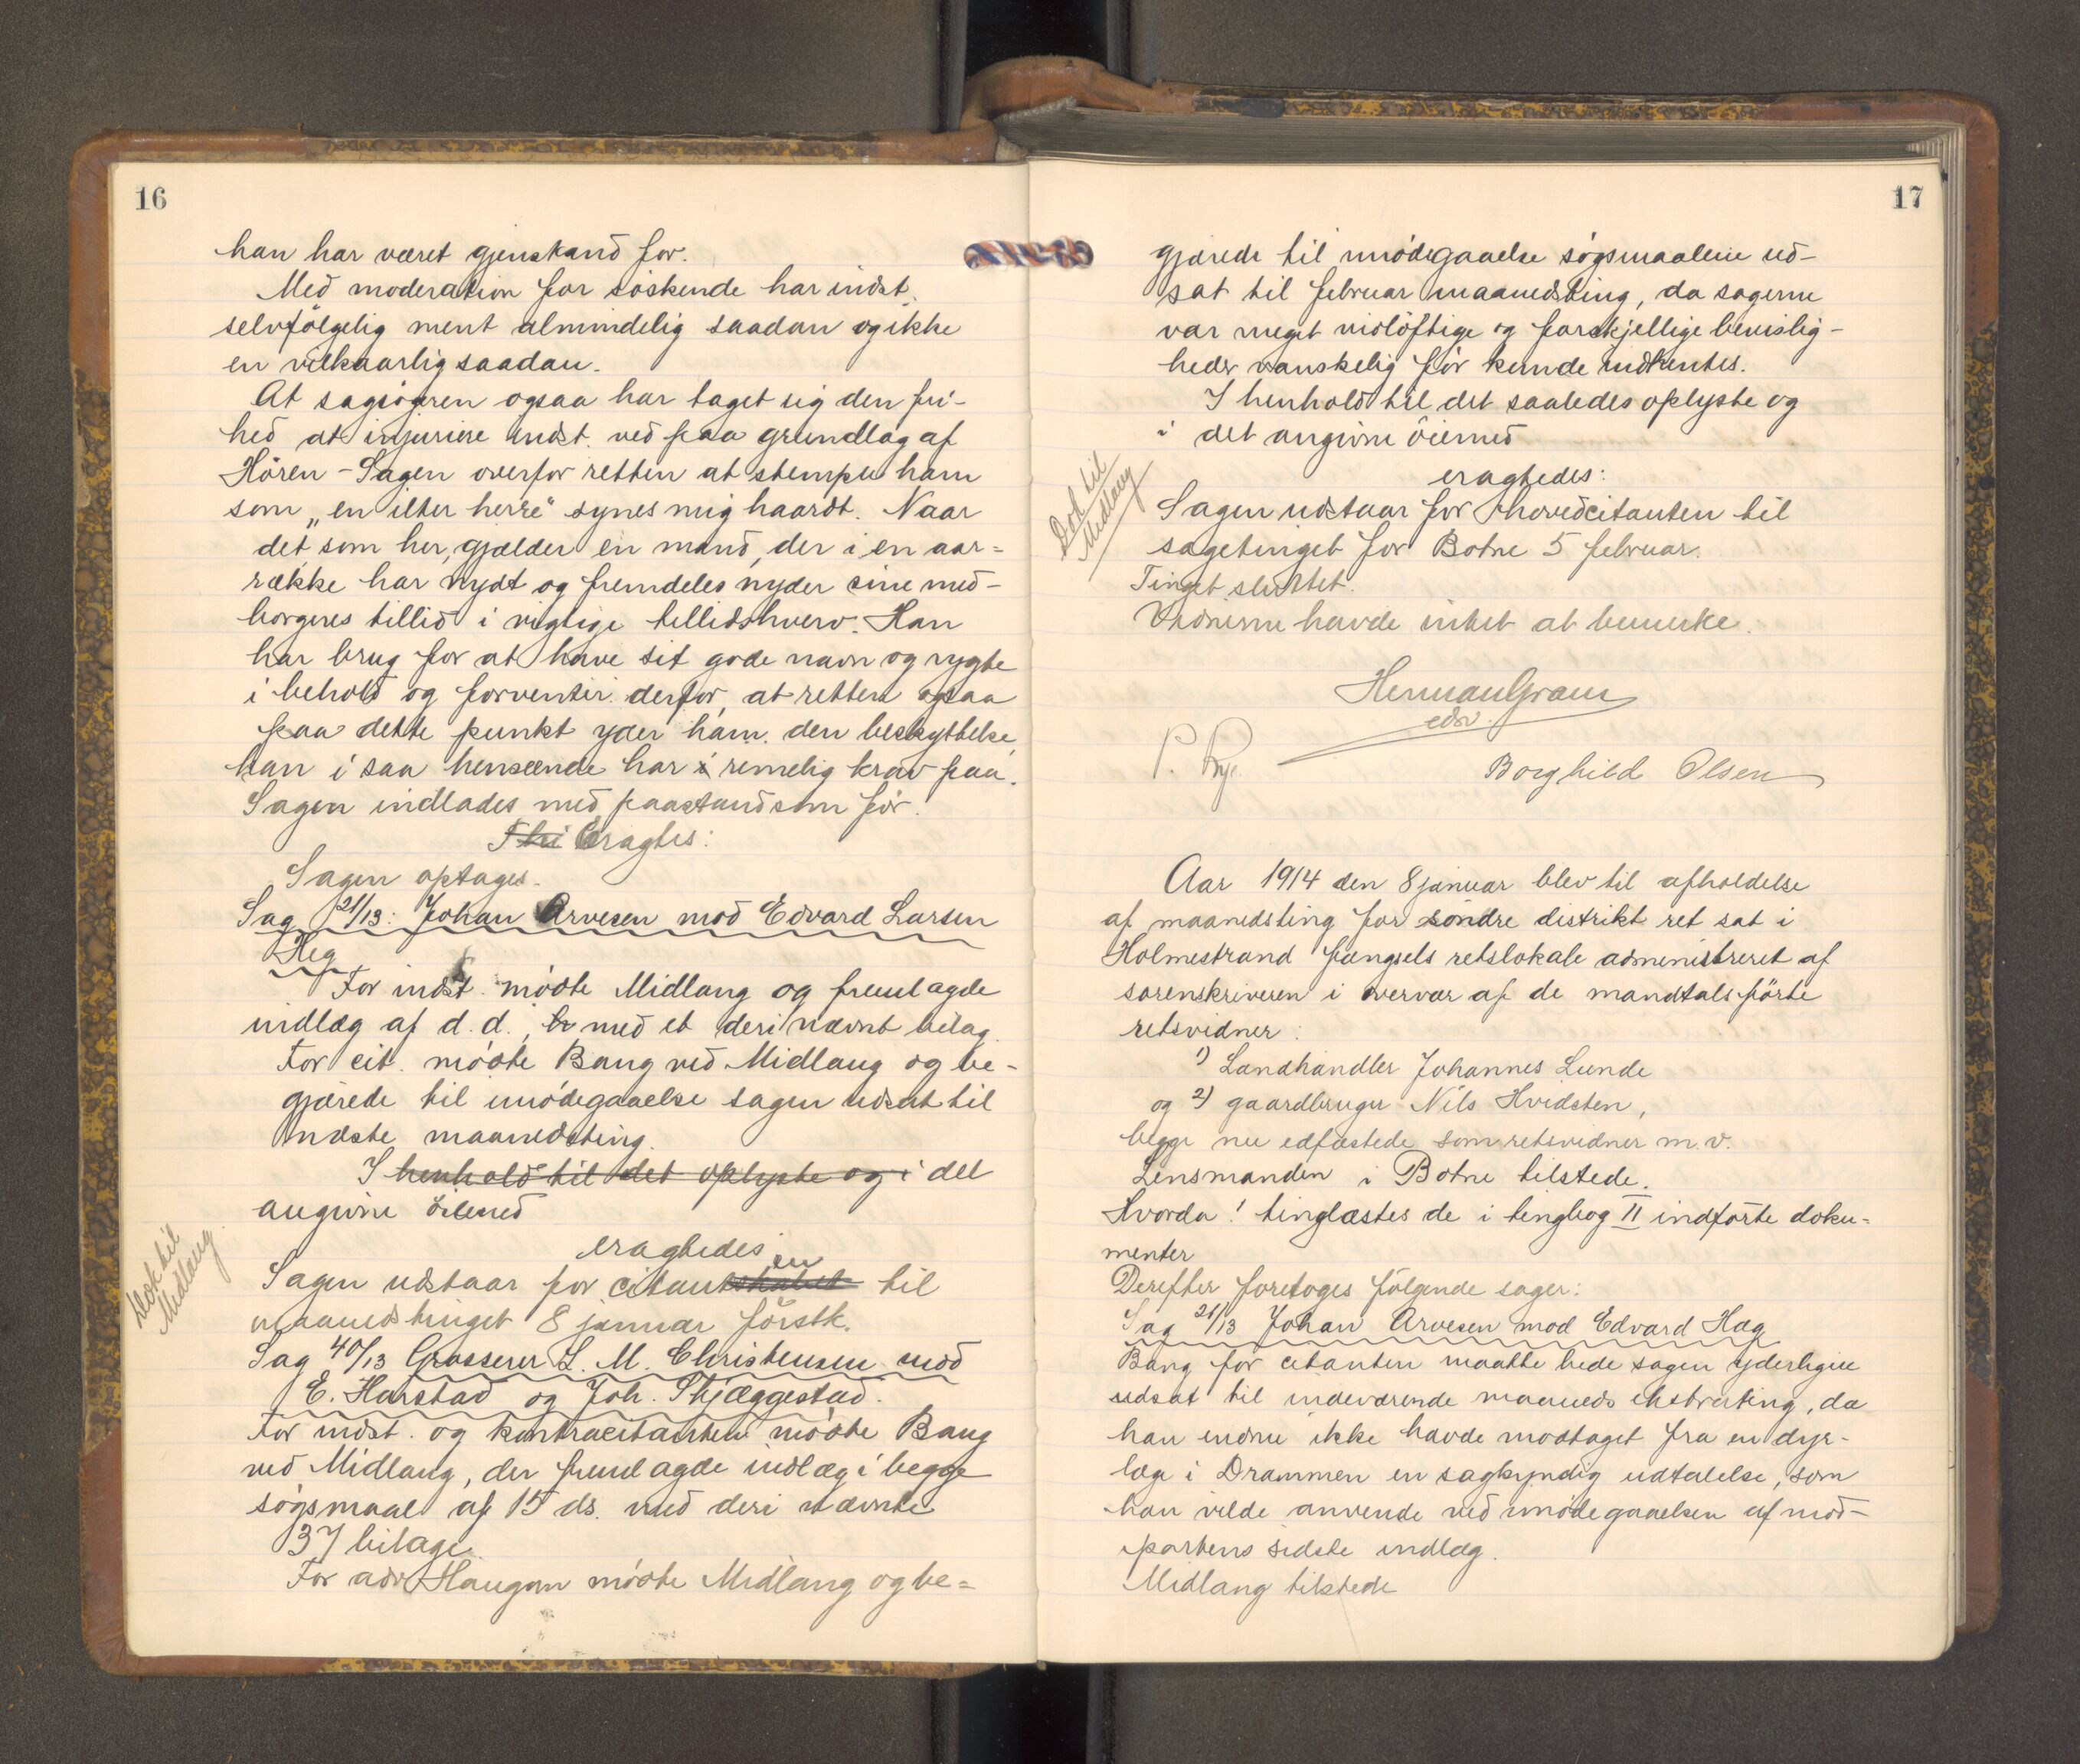 16
han har været gjenstand for.
Med moderation for söskende har indst.
selvfölgelig ment almindelig saadan og ikke
en vilkaarlig saadan.
At sagsögeren ogsaa har taget sig den fri-
hed at injuriere indst. ved paa grundlag af
Hören-Sagen overfor retten at stemple ham
som „en ilter herre" synes mig haardt. Naar
det som her, gjælder en mand, der i en aar=
række har nydt og fremdeles nyder sine med-
borgeres tillid i vigtige tillidshverv. Han
har brug for at have sit gode navn og rygte
i behold og forventer derfor, at retten ogsaa
paa dette punkt yder ham den beskyttelse,
han i saa henseende har i rimelig krav paa.
Sagen indlades med paastand som för.
Thi eragtes:
Sagen optages.
Sag 21/13: Johan Arvesen mod Edvard Larsen
Heg
For indst. mödte Midlang og fremlagde
indlæg af d.d., med et deri nævnt bilag.
For cit. mödte Bang ved Midlang og be-
gjærede til imödegaaelse sagen udsat til
næste maanedsting.
I henhold til det oplyste og i det
angivne öiemed
eragtedes
Sagen udstaar for citantskabet en til
maanedstinget 8 januar förstk.
Dok til
Midlang.
Sag 40/13 Grosserer L. M. Christensen mod
E. Harstad og Joh. Skjæggestad.
For indst. og kontracitanten mödte Bang
ved Midlang, der fremlagde indlæg i begge
sögsmaal af 15 ds. med deri nævnte
37 bilage.
For adv. Haugan mödte Midlang og be=
17
gjærede til imödegaaelse sögsmaalene ud-
sat til februar maanedsting, da sagerne
var meget vidlöftige og forskjellige bevislig-
heder vanskelig för kunde indhentes.
I henhold til det saaledes oplyste og
i det angivne öiemed
eragtedes:
Dok til
Midlang
Sagen udstaar for hovedcitanten til
sagetinget for Botne 5 februar.
Tinget sluttet.
Vidnerne havde intet at bemerke.
Herman Gram
edsv.
P. Rye.
Borghild Olsen
Aar 1914 den 8 januar blev til afholdelse
af maanedsting for söndre distrikt ret sat i
Holmestrand fængsels retslokale administreret af
sorenskriveren i overvær af de mandtalsförte
retsvidner:
1) Landhandler Johannes Lunde
og 2) gaardbruger Nils Hvidsten,
begge nu edfæstede som retsvidner m.v.
Lensmanden i Botne tilstede.
Hvorda! tinglæstes de i tingbog II indförte doku=
menter
Derefter foretoges fölgende sager:
Sag 21/13 Johan Arvesen mod Edvard Hæg
Bang for citanten maatte bede sagen yderligere
udsat til indeværende maaneds ekstrating, da
han endnu ikke havde modtaget fra en dyr-
læge i Drammen en sagkyndig udtalelse, som
han vilde anvende ved imödegaaelsen af mod-
partens sidste indlæg.
Midlang tilstede